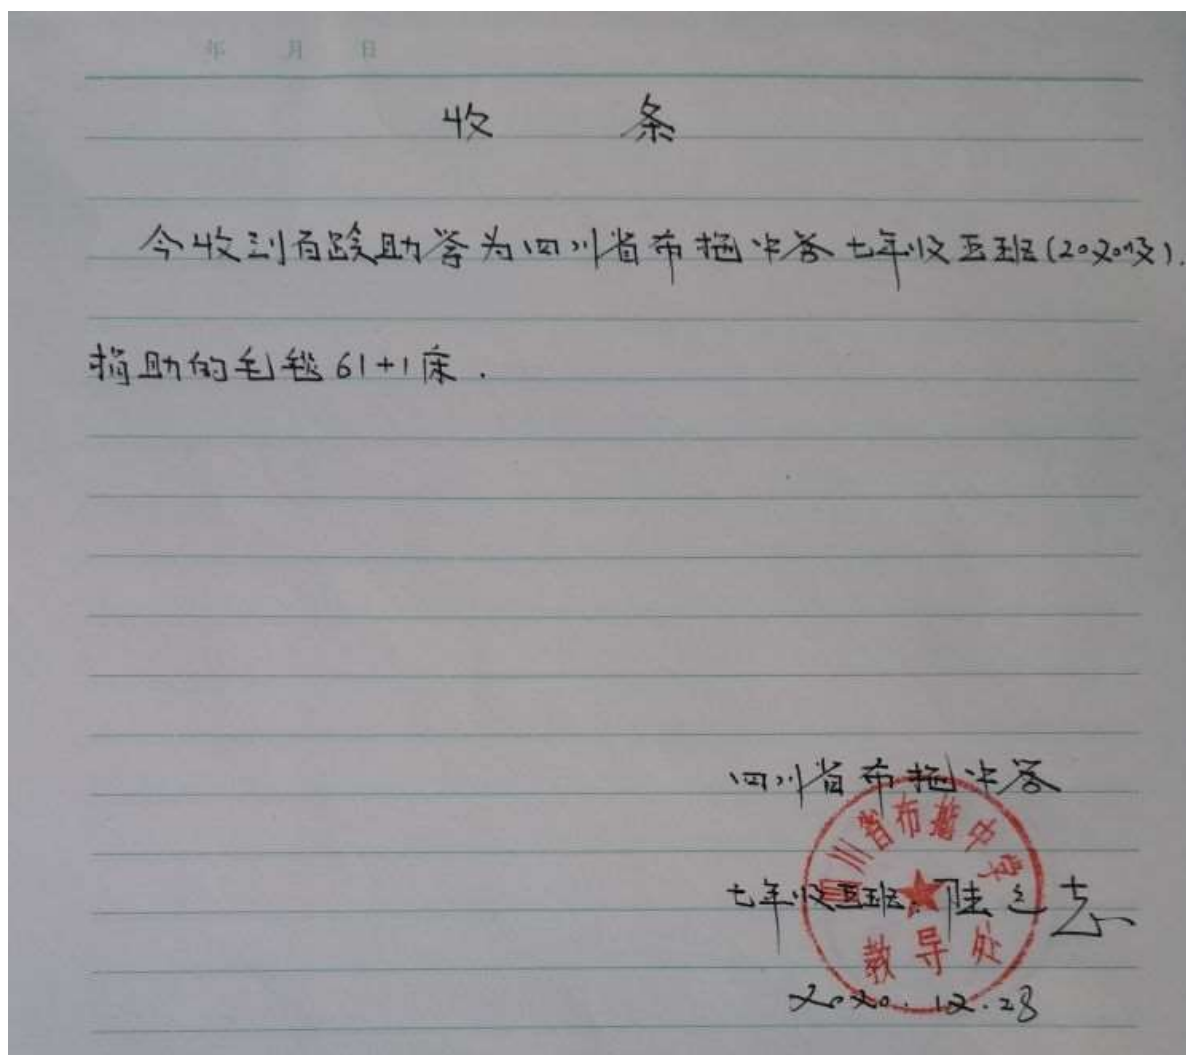 年 月 日
收 条
今收到百跤助学为四川省布拖中学七年级五班(2020级).
捐助的毛毯61+1床.
四川省布拖中学
七年级五班:
四川省布拖中学
教导处
2020.12.28